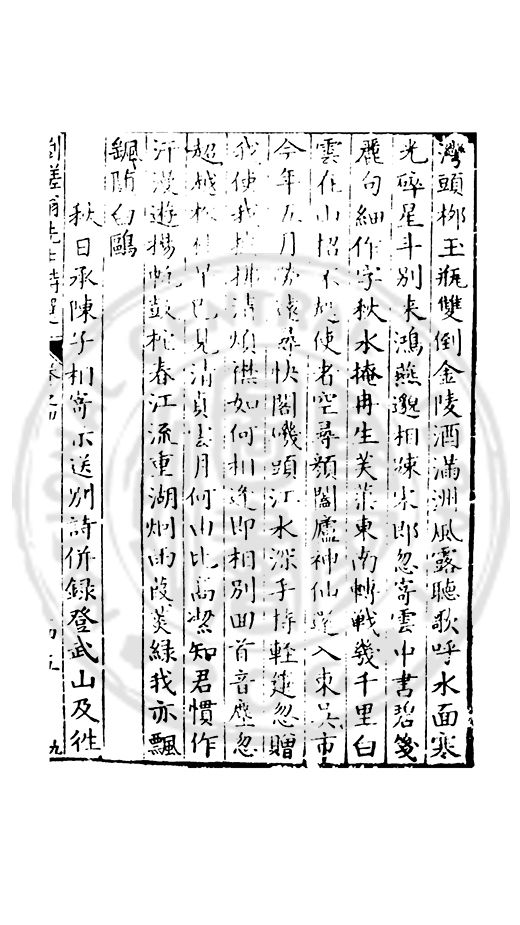 灣頭栁玉瓶雙倒金陵酒滿洲風露聽歌呼水面寒
光碎星斗別来鴻燕邈相踈宋郎忽寄雲中書碧箋
麗句細作字秋水掩冉生芙蕖東南轉戰幾千里白
雲在山招不起使者空尋顏闔廬神仙遂入東吳市
今年五月 遠尋快閣磯頭江水深手持輕 忽贈
我使我 拂清煩襟如何相逢即相別囬首音塵忽
超越 見清貞雲月何山比高潔知君慣作
汗漫遊揚帆鼓枻春江流重湖烟雨葭菼緑我亦飄
飄隨白鷗
秋日承陳子相寄示送別詩併録登武山及徃
先生詩選 九